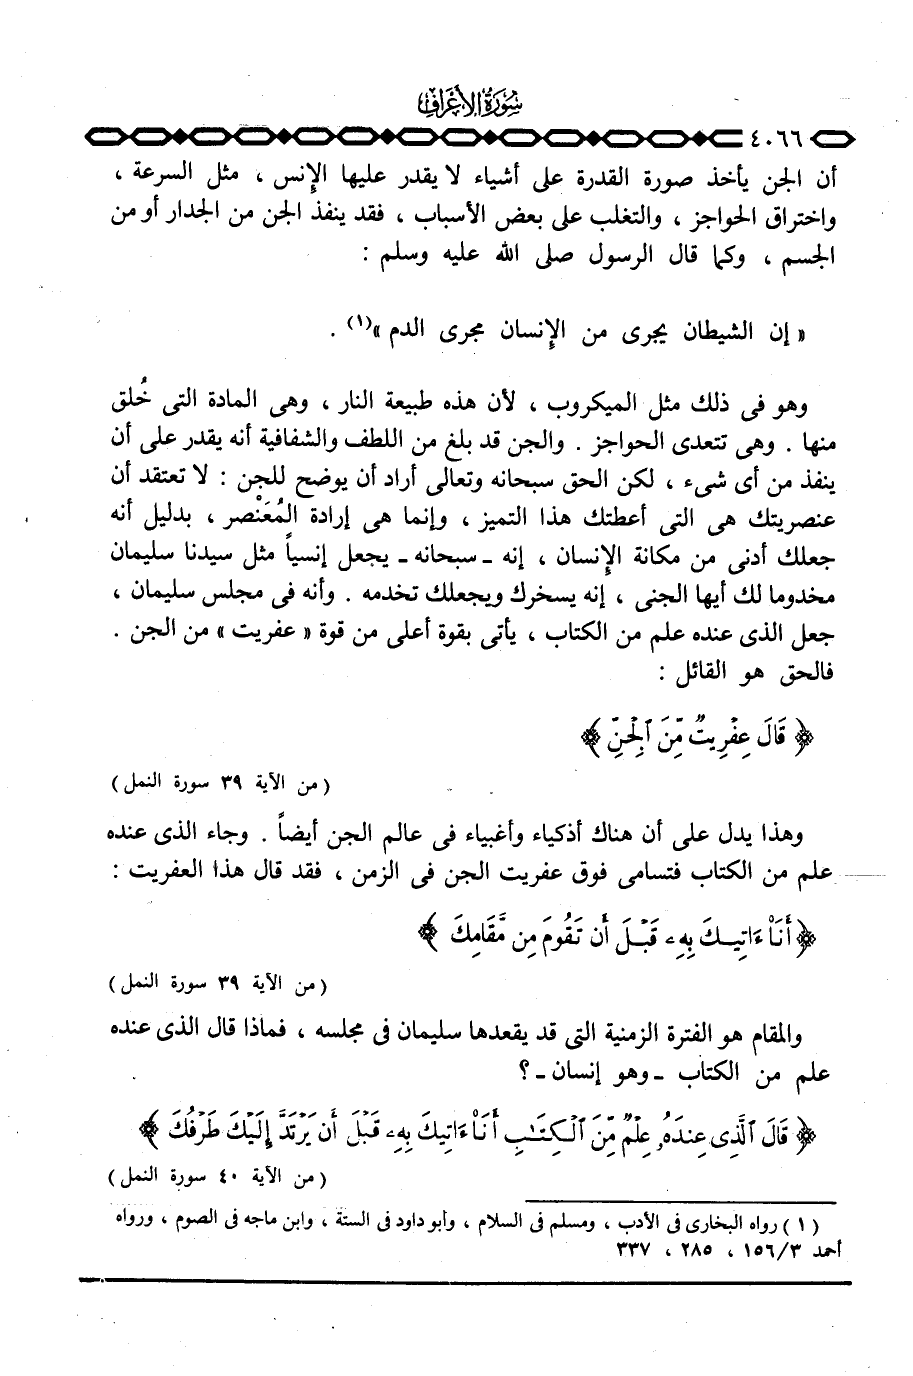 سُورَةُ الأَعْرَافِ
٤٠٦٦
أن الجن يأخذ صورة القدرة على أشياء لا يقدر عليها الإنس ، مثل السرعة ،
واختراق الحواجز ، والتغلب على بعض الأسباب ، فقد ينفذ الجن من الجدار أو من
الجسم ، وكما قال الرسول صلى الله عليه وسلم :
« إن الشيطان يجرى من الإنسان مجرى الدم »(١) .
وهو فى ذلك مثل الميكروب ، لأن هذه طبيعة النار ، وهى المادة التى خُلق
منها . وهى تتعدى الحواجز . والجن قد بلغ من اللطف والشفافية أنه يقدر على أن
ينفذ من أى شىء ، لكن الحق سبحانه وتعالى أراد أن يوضح للجن : لا تعتقد أن
عنصريتك هى التى أعطتك هذا التميز ، وإنما هى إرادة المُعَنْصر ، بدليل أنه
جعلك أدنى من مكانة الإنسان ، إنه ـ سبحانه ـ يجعل إنسياً مثل سيدنا سليمان
مخدوما لك أيها الجنى ، إنه يسخرك ويجعلك تخدمه . وأنه فى مجلس سليمان ،
جعل الذى عنده علم من الكتاب ، يأتى بقوة أعلى من قوة « عفريت » من الجن .
فالحق هو القائل :
﴿ قَالَ عِفْرِيتٌ مِّنَ ٱلْجِنِّ ﴾
( من الآية ٣٩ سورة النمل )
وهذا يدل على أن هناك أذكياء وأغبياء فى عالم الجن أيضاً . وجاء الذى عنده
علم من الكتاب فتسامى فوق عفريت الجن فى الزمن ، فقد قال هذا العفريت :
﴿ أَنَا۠ ءَاتِيكَ بِهِۦ قَبْلَ أَن تَقُومَ مِن مَّقَامِكَ ﴾
( من الآية ٣٩ سورة النمل )
والمقام هو الفترة الزمنية التى قد يقعدها سليمان فى مجلسه ، فماذا قال الذى عنده
علم من الكتاب ـ وهو إنسان ـ ؟
﴿ قَالَ ٱلَّذِى عِندَهُۥ عِلْمٌ مِّنَ ٱلْكِتَٰبِ أَنَا۠ ءَاتِيكَ بِهِۦ قَبْلَ أَن يَرْتَدَّ إِلَيْكَ طَرْفُكَ ﴾
( من الآية ٤٠ سورة النمل )
( ١ ) رواه البخارى فى الأدب ، ومسلم فى السلام ، وأبو داود فى السنة ، وابن ماجه فى الصوم ، ورواه
أحمد ١٥٦/٣ ، ٢٨٥ ، ٣٣٧